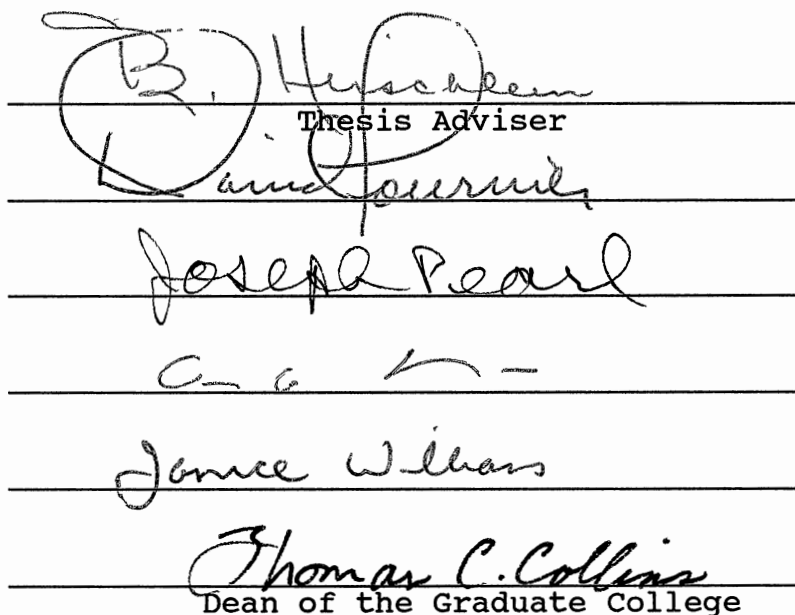 B. Hirschlein
Thesis Adviser
David Fournier
Joseph Pearl
Janice Williams
Thomas C. Collins
Dean of the Graduate College